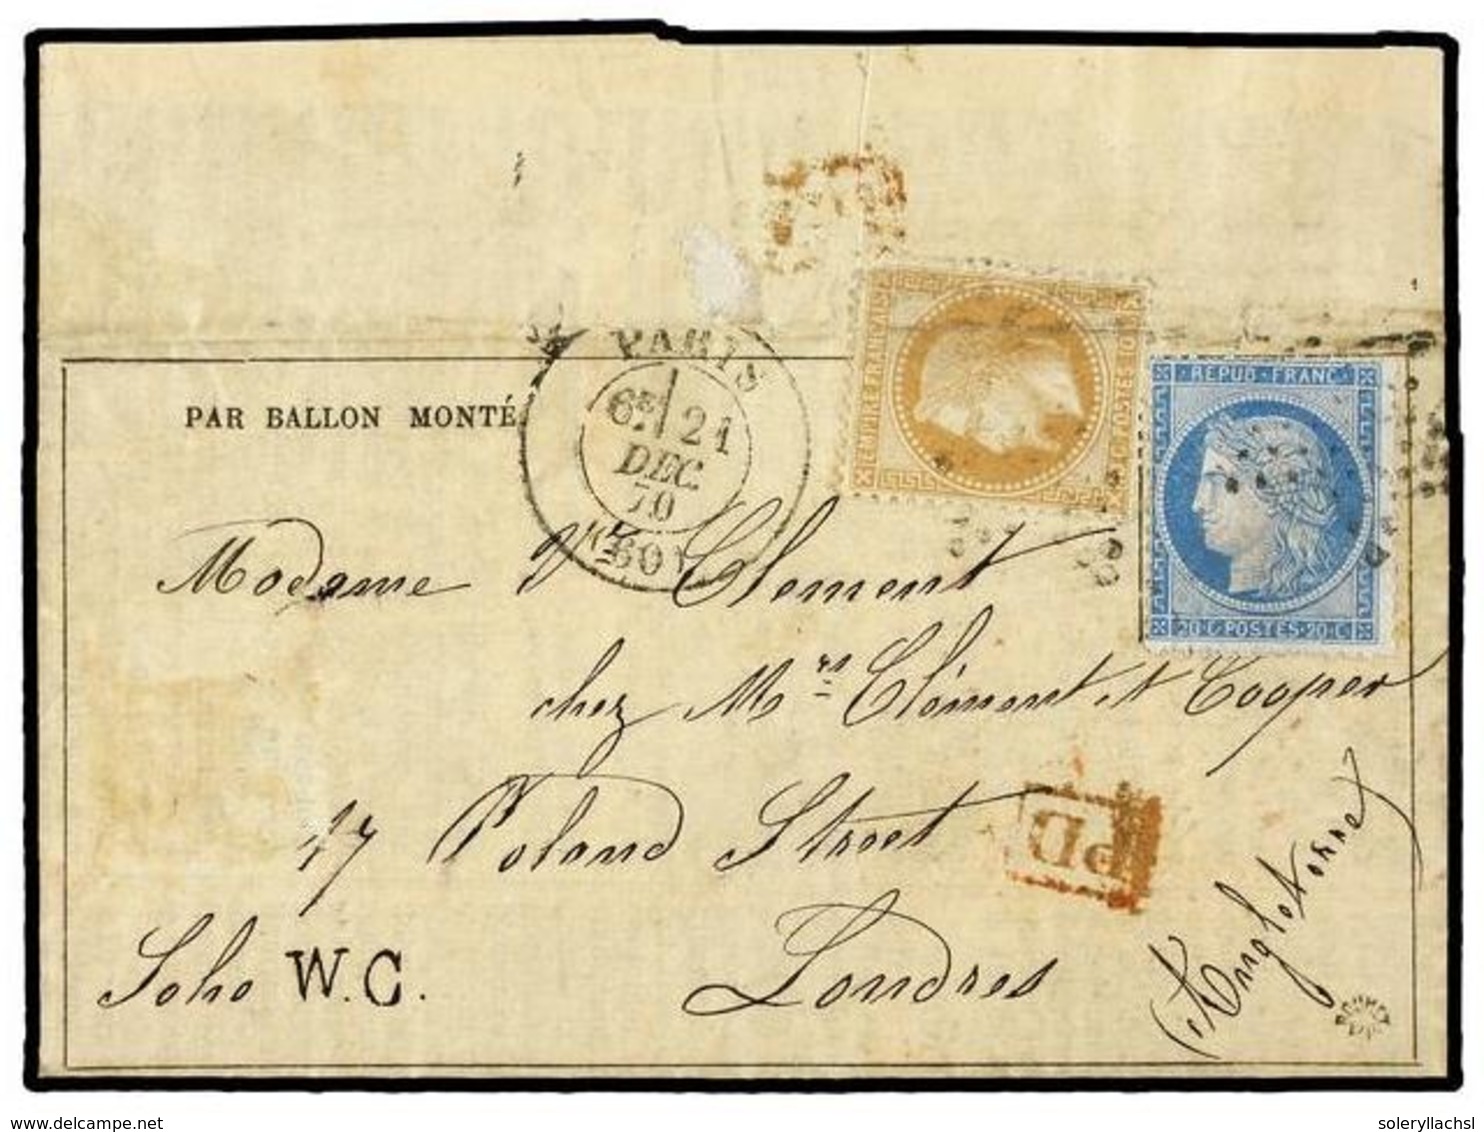 PARIS
6E/ 21
DEC.
70
(60)
PAR BALLON MONTÉ
EMPIRE FRANÇAIS
REPUB · FRANC
20·C·POSTES·20·C
Madame Vve Clement
chez Mrs Clément et Cooper
17 Poland Street
PD
Soho W.C.
Londres
(Angleterre)
www.delcampe.net
soleryllachsl